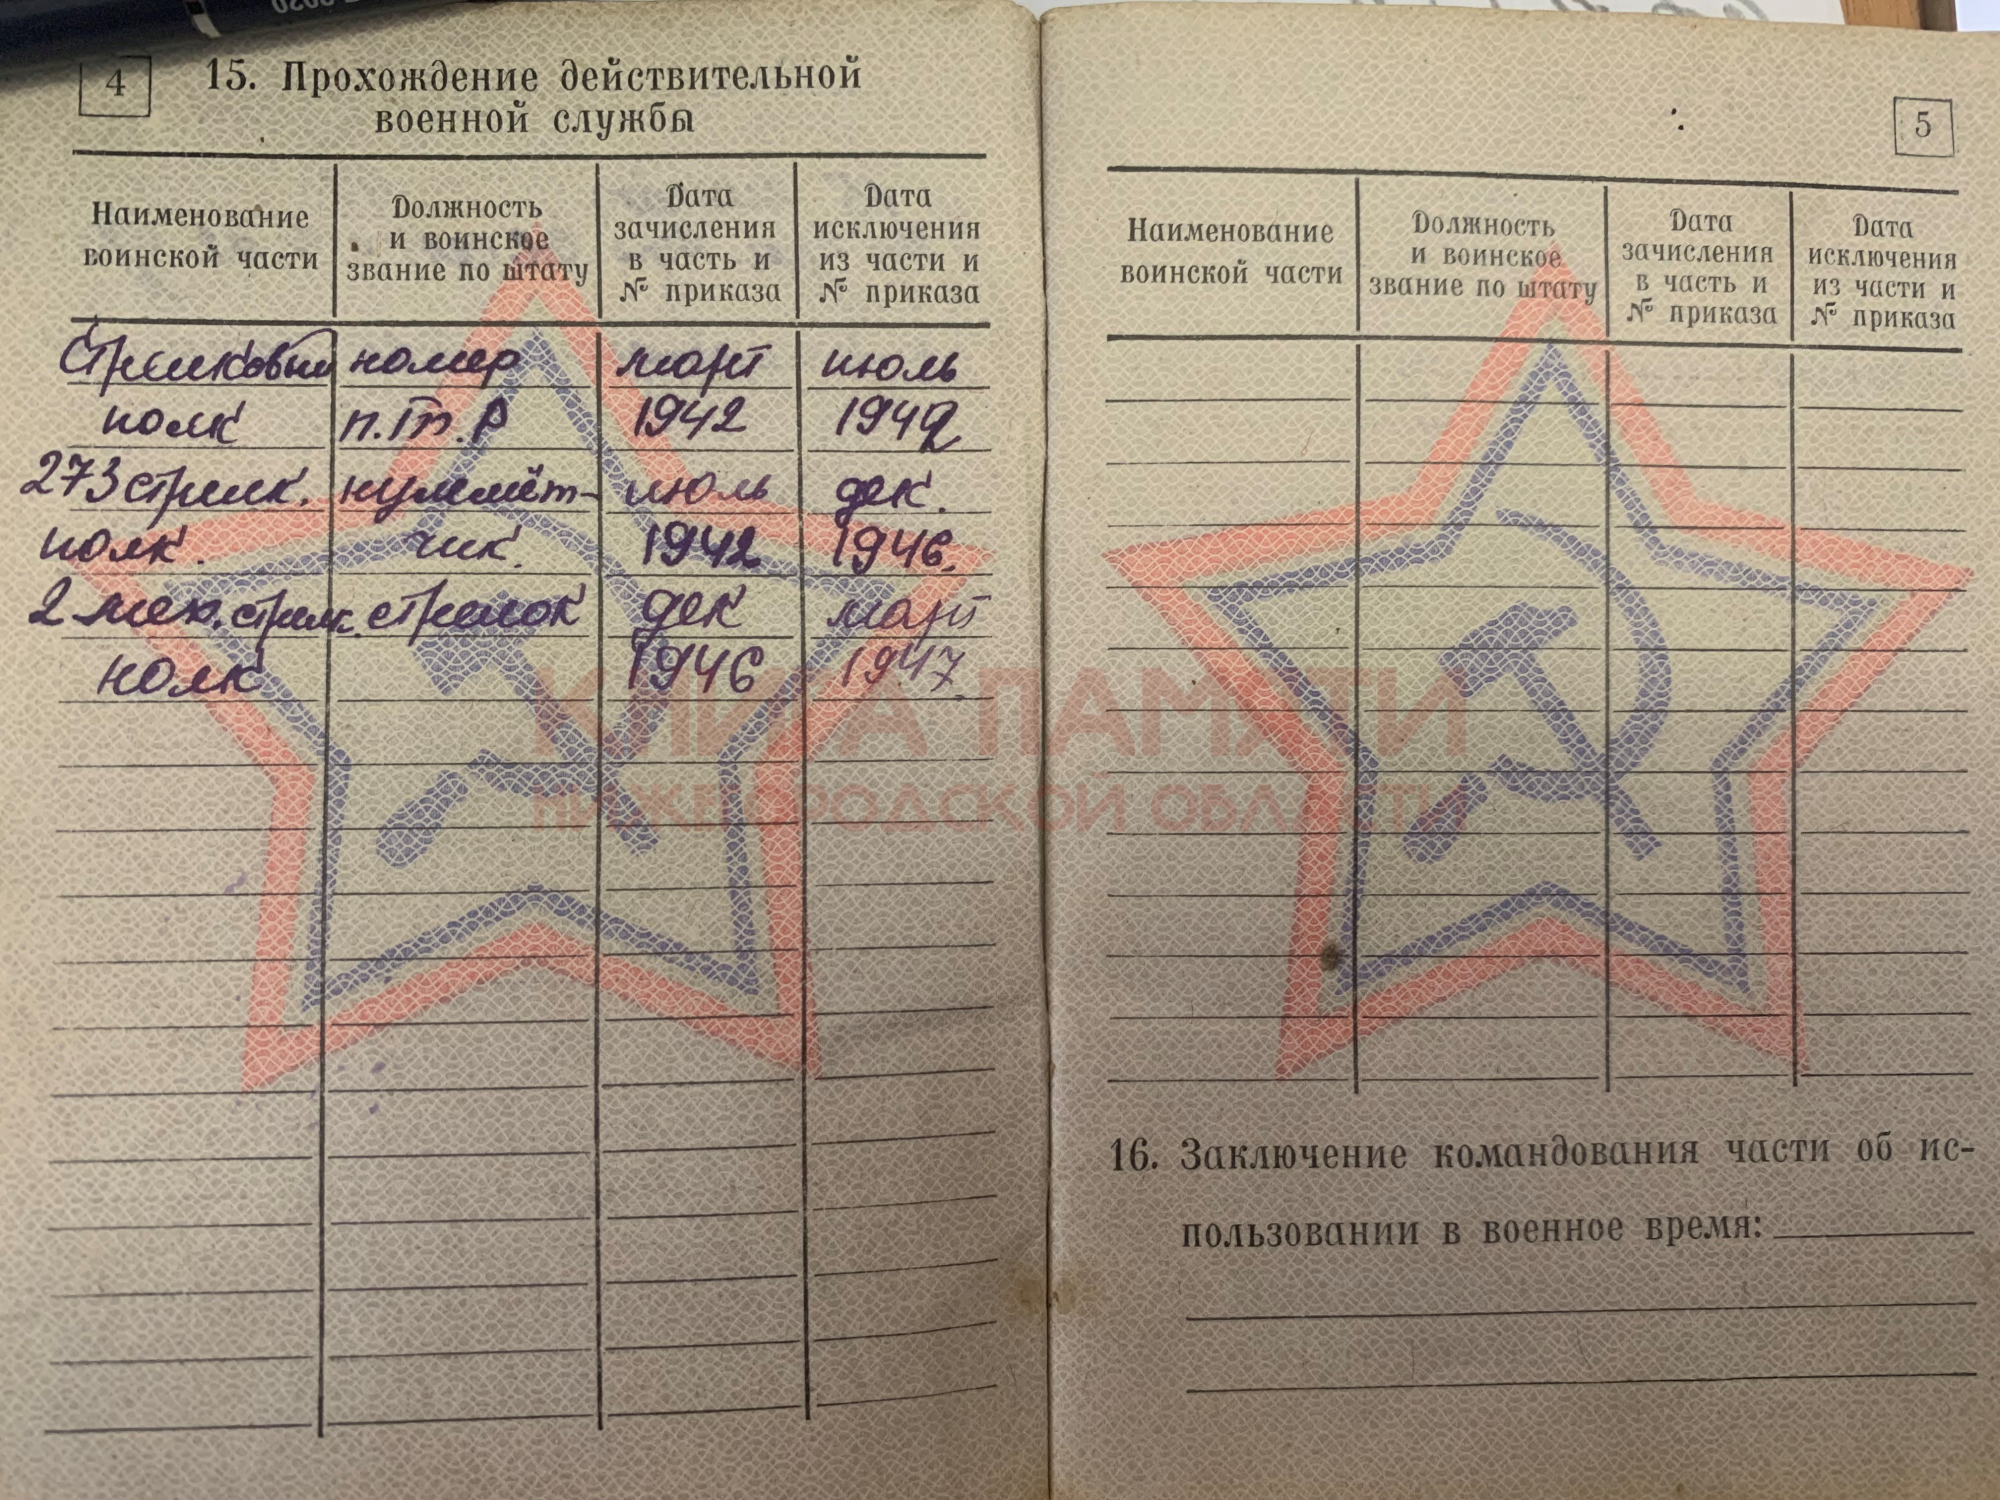 4
15. Прохождение действительной
военной службы
Наименование
воинской части
Должность
и воинское
звание по штату
Дата
зачисления
в часть и
№ приказа
Дата
исключения
из части и
№ приказа
Стрелковый номер март июль
полк п.т.Р 1942 1942
273 стрелк. пулемёт- июль дек.
полк. чик. 1942 1946.
2 мех. стрелк. стрелок дек март
полк 1946 1947
5
Наименование
воинской части
Должность
и воинское
звание по штату
Дата
зачисления
в часть и
№ приказа
Дата
исключения
из части и
№ приказа
16. Заключение командования части об ис-
пользовании в военное время:
КНИГА ПАМЯТИ
НИЖЕГОРОДСКОЙ ОБЛАСТИ
2020